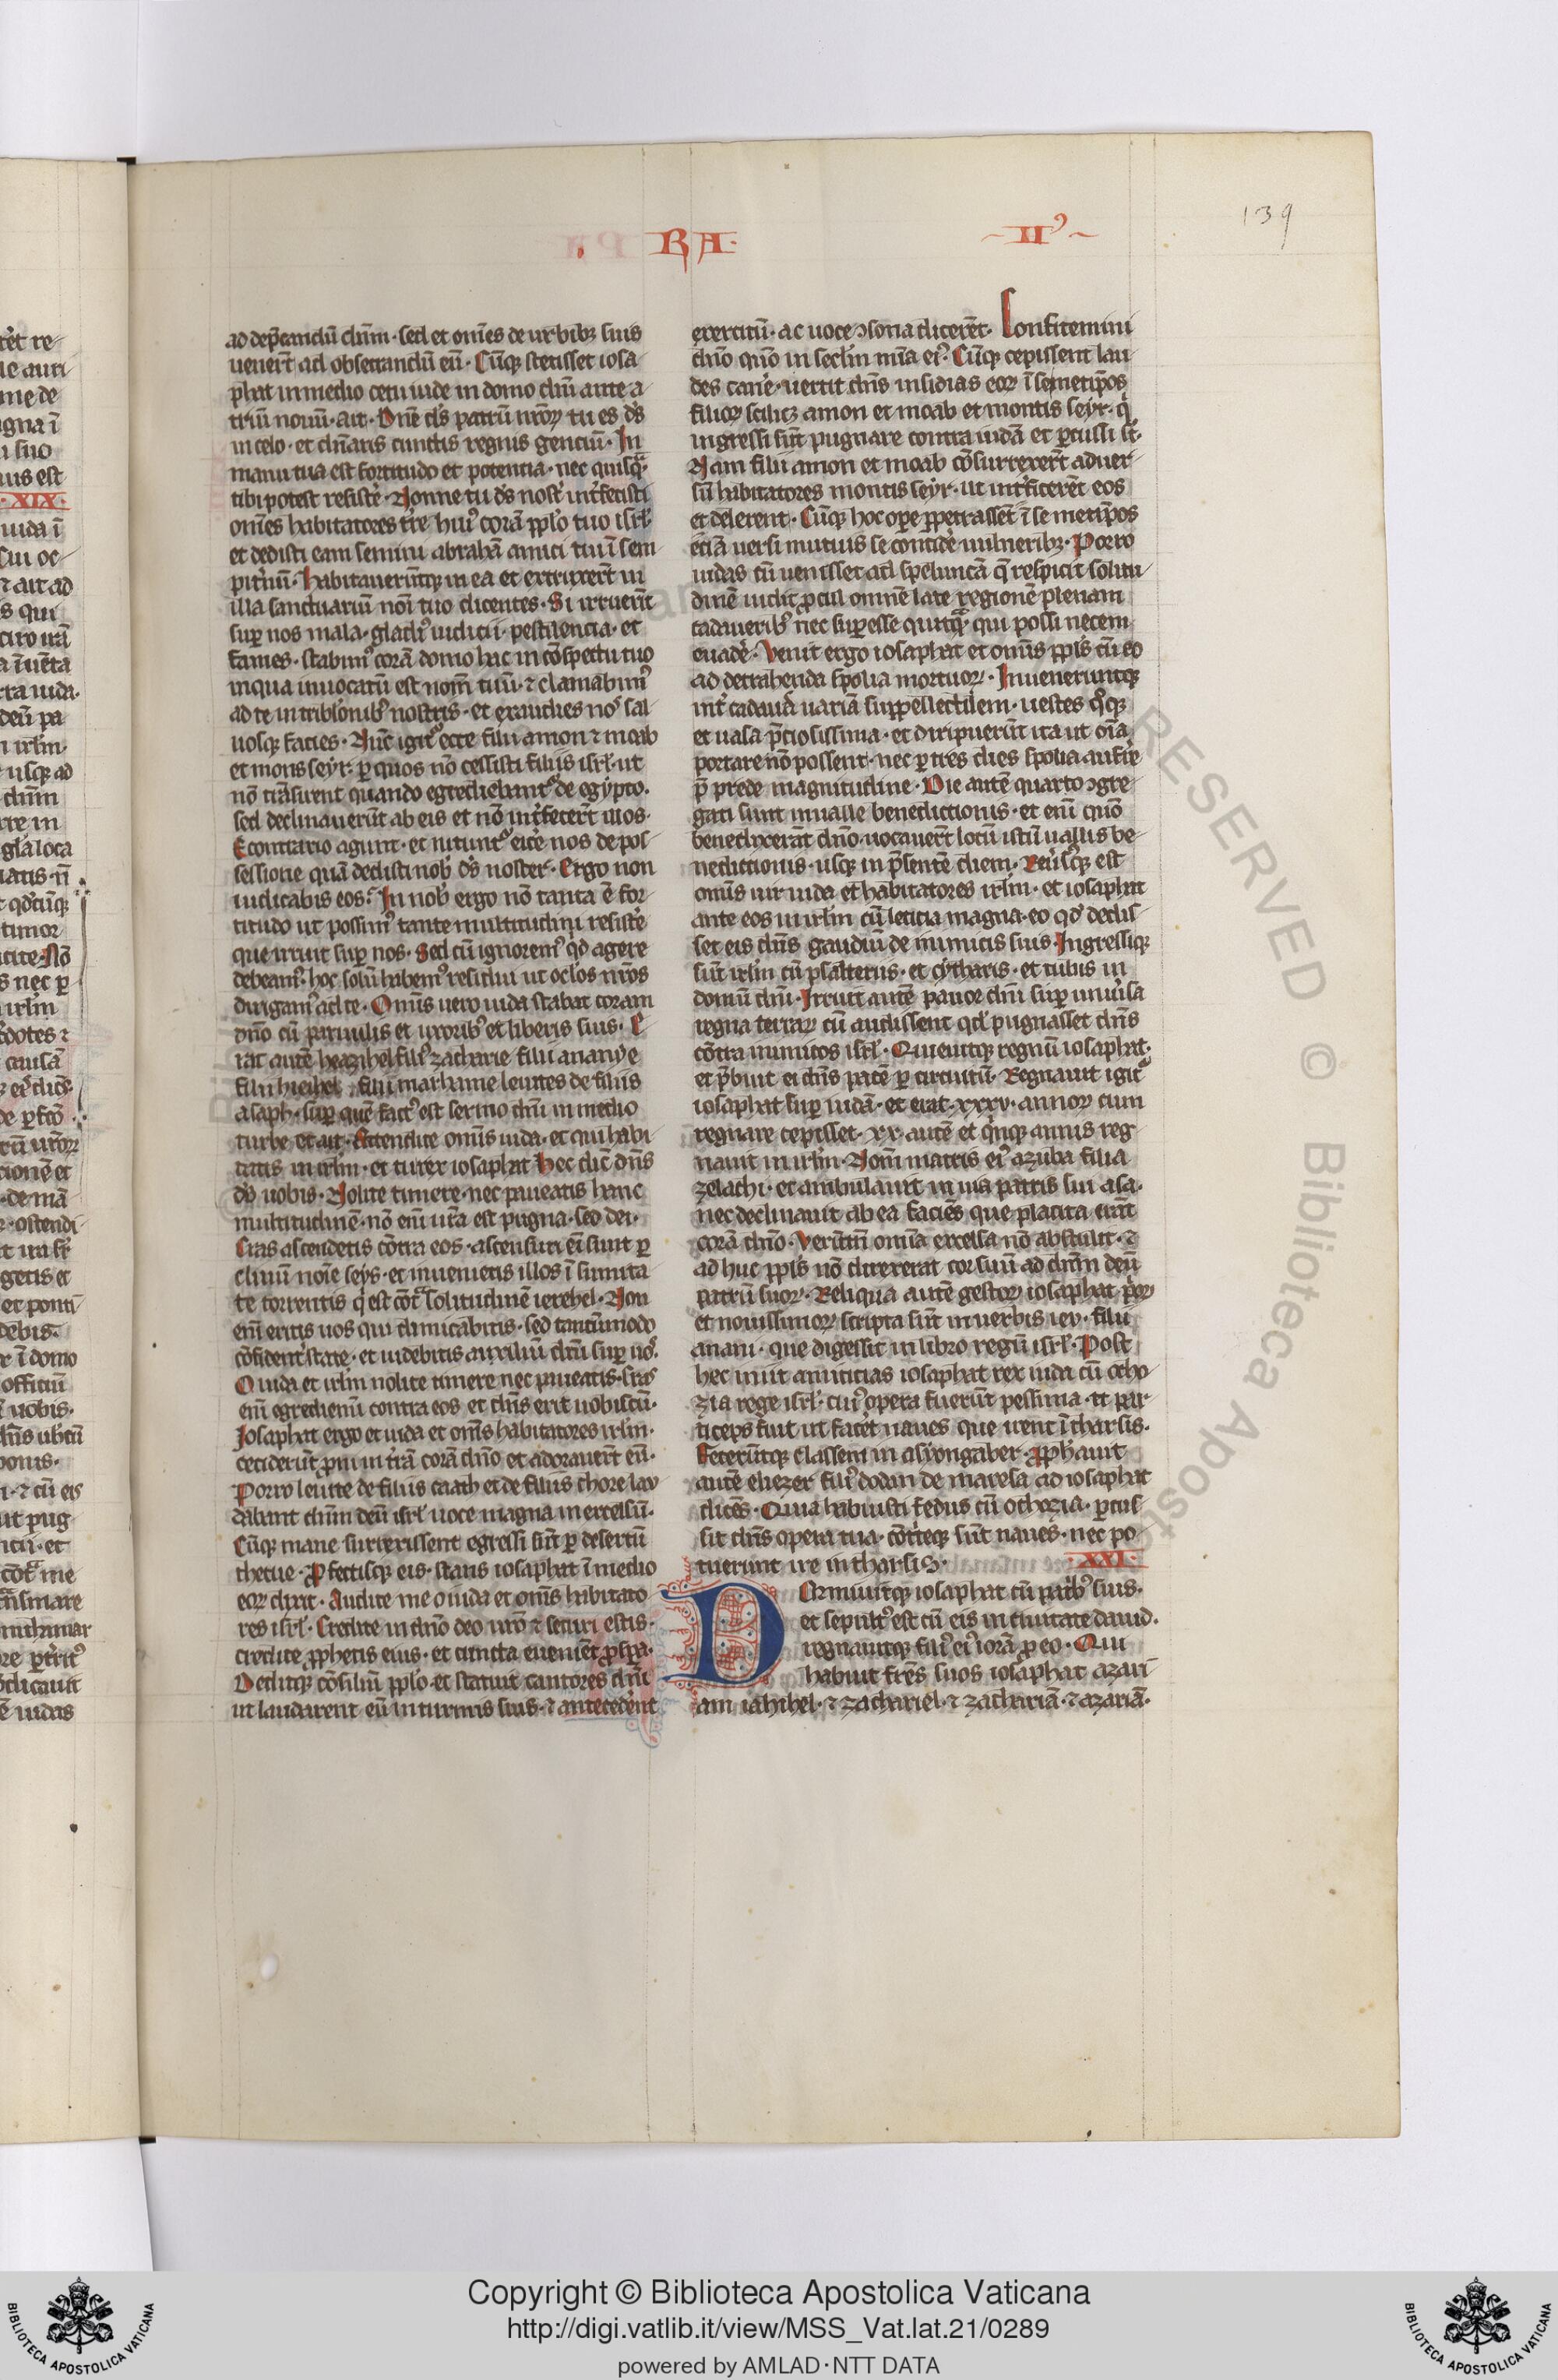 139
RA·
II⁹
ad dep̄candū dn̄m· sed et om̄es de urbibꝫ suis
uener̄t ad obsecrandū eū· Cūqꝫ stetisset iosa
phat in medio cetu iude in domo dn̄i ante a
triū nouū· ait· Dn̄e ds̄ patrū nr̄oꝝ tu es ds̄
in celo· et dn̄aris cunctis regnis genciū· In
manu tua est fortitudo et potentia· nec quisqᷓ
tibi potest resistẻ· Nonne tu ds̄ nost̉ int̉fecisti
om̄es habitatores t̉re huiꝰ corā pplo tuo isrl̓·
et dedisti eam semini abrahā amici tui ī sem
pit̉nū· habitauerūtqꝫ in ea et extruxer̄t in
illa sanctuariū noī tuo dicentes· Si irruerīt
suꝑ nos mala· gladiꝰ iudicii· pestilencia· et
fames· stabimꝰ corā domo hac in cōspectu tuo
in qua inuocatū est nom̄ tuū· ⁊ clamabimꝰ
ad te in tribl̓onibꝰ nostris· et exaudies noˢ sal
uosqꝫ facies· Nūc igit᷑ ecce filii amon ⁊ moab
et mons seyr· ꝑ quos nō cessisti filiis isrl̓· ut
nō trāsirent quando egrediebant᷑ de egypto·
sed declinauerūt ab eis et nō int̉fecer̄t illos·
Econtrario agunt· et nitunt᷑ eicẻ nos de pos
sessione quā dedisti nob̓ ds̄ noster· Ergo non
iudicabis eos? In nob̓ ergo nō tanta ē for
titudo ut possimꝰ tante multitudini resistẻ
que irruit suꝑ nos· Sed cū ignoremꝰ qd̓ agere
debeamꝰ· hoc solū habemꝰ residui ut oclos nr̄os
dirigamꝰ ad te· Omīs uero iuda stabat coram
dn̄o cū paruulis et uxoribꝰ et liberis suis· E
rat autē heazihel filiꝰ zacharie filii ananye
filii hieihel filii mathanie leuites de filiis
asaph· suꝑ quē factꝰ est sermo dn̄i in medio
turbe et ait· Attendite omīs iuda· et qui habi
tatis in irlm̄· et tu rex iosaphat hec dic̄ dn̄s
ds̄ uobis· Nolite timere· nec paueatis hanc
multitudinē· nō eni ur̄a est pugna· sed dei·
Cras ascendetis cōtra eos· ascensuri eī sunt ꝑ
cliuū noīe seys· et inuenietis illos ī sumita
te torrentis q̇ est cōtᷓ solitudinē ieruhel· Non
enī eritis uos qui dimicabitis· sed tantūmodo
cōfident̉ state· et uidebitis auxiliū dn̄i suꝑ uoˢ·
O iuda et irlm̄ nolite timere nec paueatis· cras
enī egredieni contra eos· et dn̄s erit uobiscū·
Iosaphat ergo et iuda et om̄s habitatores irlm̄·
ceciderūt ꝓni in t̉rā corā dn̄o et adorauer̄t eū·
Porro leuite de filiis caath et de filiis chore lau
dabant dn̄m deū isrl̓ uoce magna in excelsū·
Cūqꝫ mane surrexissent egressi sūt ꝑ desertū
thecue· Ꝓfectisqꝫ eis· stans iosaphat ī medio
eoꝝ dixit· Audite me o iuda et omīs habitato
res isrl̓· Credite in dn̄o deo uro ⁊ securi estis·
credite ꝓphetis eius· et cuncta eueniēt ꝓspa·
Deditqꝫ cōsiliū pplo· et statuit cantores dn̄i
ut laudarent eū in turmis suis· ⁊ antecedẻnt
exercitū· ac uoce ꝯsona dicerēt· Confitemini
dn̄o quō in seclm̄ mīa eiꝰ· Cūqꝫ cepissent lau
des canẻ· uertit dn̄s insidias eoꝝ ī semetip̄os
filioꝝ scilicꝫ amon et moab et montis seyr· q̇
ingressi sūt pugnare contra iudā et ꝑcussi sī·
Nam filii amon et moab cōsurrexer̄t aduer
sū habitatores montis seyr· ut int̉ficerēt eos
et delerent· Cūqꝫ hoc oꝑe ꝑpetrassēt ī semetip̄os
etiā uersi mutuis se concidẻ uulneribꝫ· Porro
iudas cū uenisset ad speluncā q̄ respicit solitu
dinē uidit ꝓcul omnē late regionē plenam
cadaueribꝰ nec suꝑesse quicqᷓ qui possi necem
euadẻ· Venit ergo iosaphat et omīs ppl̓s cū eo
ad detrahenda spolia mortuoꝝ· Inueneruntqꝫ
int̉ cadaūa uariā suppellectilem· uestes qͦꝫ
et uasa p̄ciosissima· et diripuerūt ita ut oīa
portare nō possent· nec ꝑ tres dies spolia aufẻre
p̄ prede magnitudine· Die autē quarto ꝯgre
gati sunt in ualle benedictionis· et enī quō
benedixerāt dn̄o· uocauer̄t locū istū uallis be
nedictionis· usqꝫ in p̄sentē diem· Reuẻsqꝫ est
omīs uir iuda et habitatores irlm̄· et iosaphat
ante eos in irlm̄ cū leticia magna· eo qd̓ dedis
set eis dn̄s gaudiū de inimicis suis· Ingressiqꝫ
sūt irlm̄ cū psalteriis· et cytharis· et tubis in
domū dn̄i· Irruit autē pauor dn̄i suꝑ uniūsa
regna terraꝝ cū audissent qd̓ pugnasset dn̄s
cōtra inimicos isrl̓· Quieuitqꝫ regnū iosaphat·
et p̄buit ei dn̄s pacē ꝑ circuitū· Regnauit igit᷑
iosaphat suꝑ iudā· et erat· xxxv· annoꝝ cum
regnare cepisset· xx· autē et qͥnqꝫ annis reg
nauit in irlm̄· Nom̄ matris eiꝰ azuba filia
zelachi· et ambulauit in uia patris sui asa·
nec declinauit ab ea faciēs que placita erāt
corā dn̄o· Verūtn̄ omīa excelsa nō abstulit· ⁊
ad huc ppl̓s nō direxerat cor suū ad dn̄m deū
patrū suoꝝ· Reliqua autē gestoꝝ iosaphat· p̉oꝝ
et nouissimoꝝ scripta sūt in uerbis ieu· filii
anani· que digessit in libro regū isrl̓· Post
hec iniit amicicias iosaphat rex iuda cū ocho
zia rege isrl̓· cuiꝰ opera fuerūt pessima· et par
ticeps fuit ut facēt naues que irent ī tharsis·
Feceruntqꝫ classem in asyongaber· Ꝓph̓auit
autē eliezer filiꝰ dodan de maresa ad iosaphat
dicēs· Quia habuisti fedus cū ochozia· ꝑcus
sit dn̄s opera tua· cōt̉teqꝫ sūt naues· nec po
tuerunt ire in tharsis·
·XXI·
Dormiuitqꝫ iosaphat cū patribꝰ suis·
et sepultꝰ est cū eis in ciuitate dauid·
regnauitqꝫ filiꝰ eiꝰ iorā ꝓ eo· Qui
habuit fres̄ suos iosaphat azari
am iahihel· ⁊ zachariel· ⁊ zachariā· ⁊ azariā·
RESERVED © Biblioteca Apostolica
Copyright © Biblioteca Apostolica Vaticana
http://digi.vatlib.it/view/MSS_Vat.lat.21/0289
powered by AMLAD·NTT DATA
BIBLIOTECA APOSTOLICA VATICANA
BIBLIOTECA APOSTOLICA VATICANA